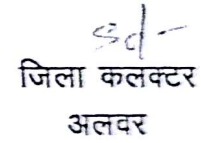 sd-
जिला कलक्टर
अलवर